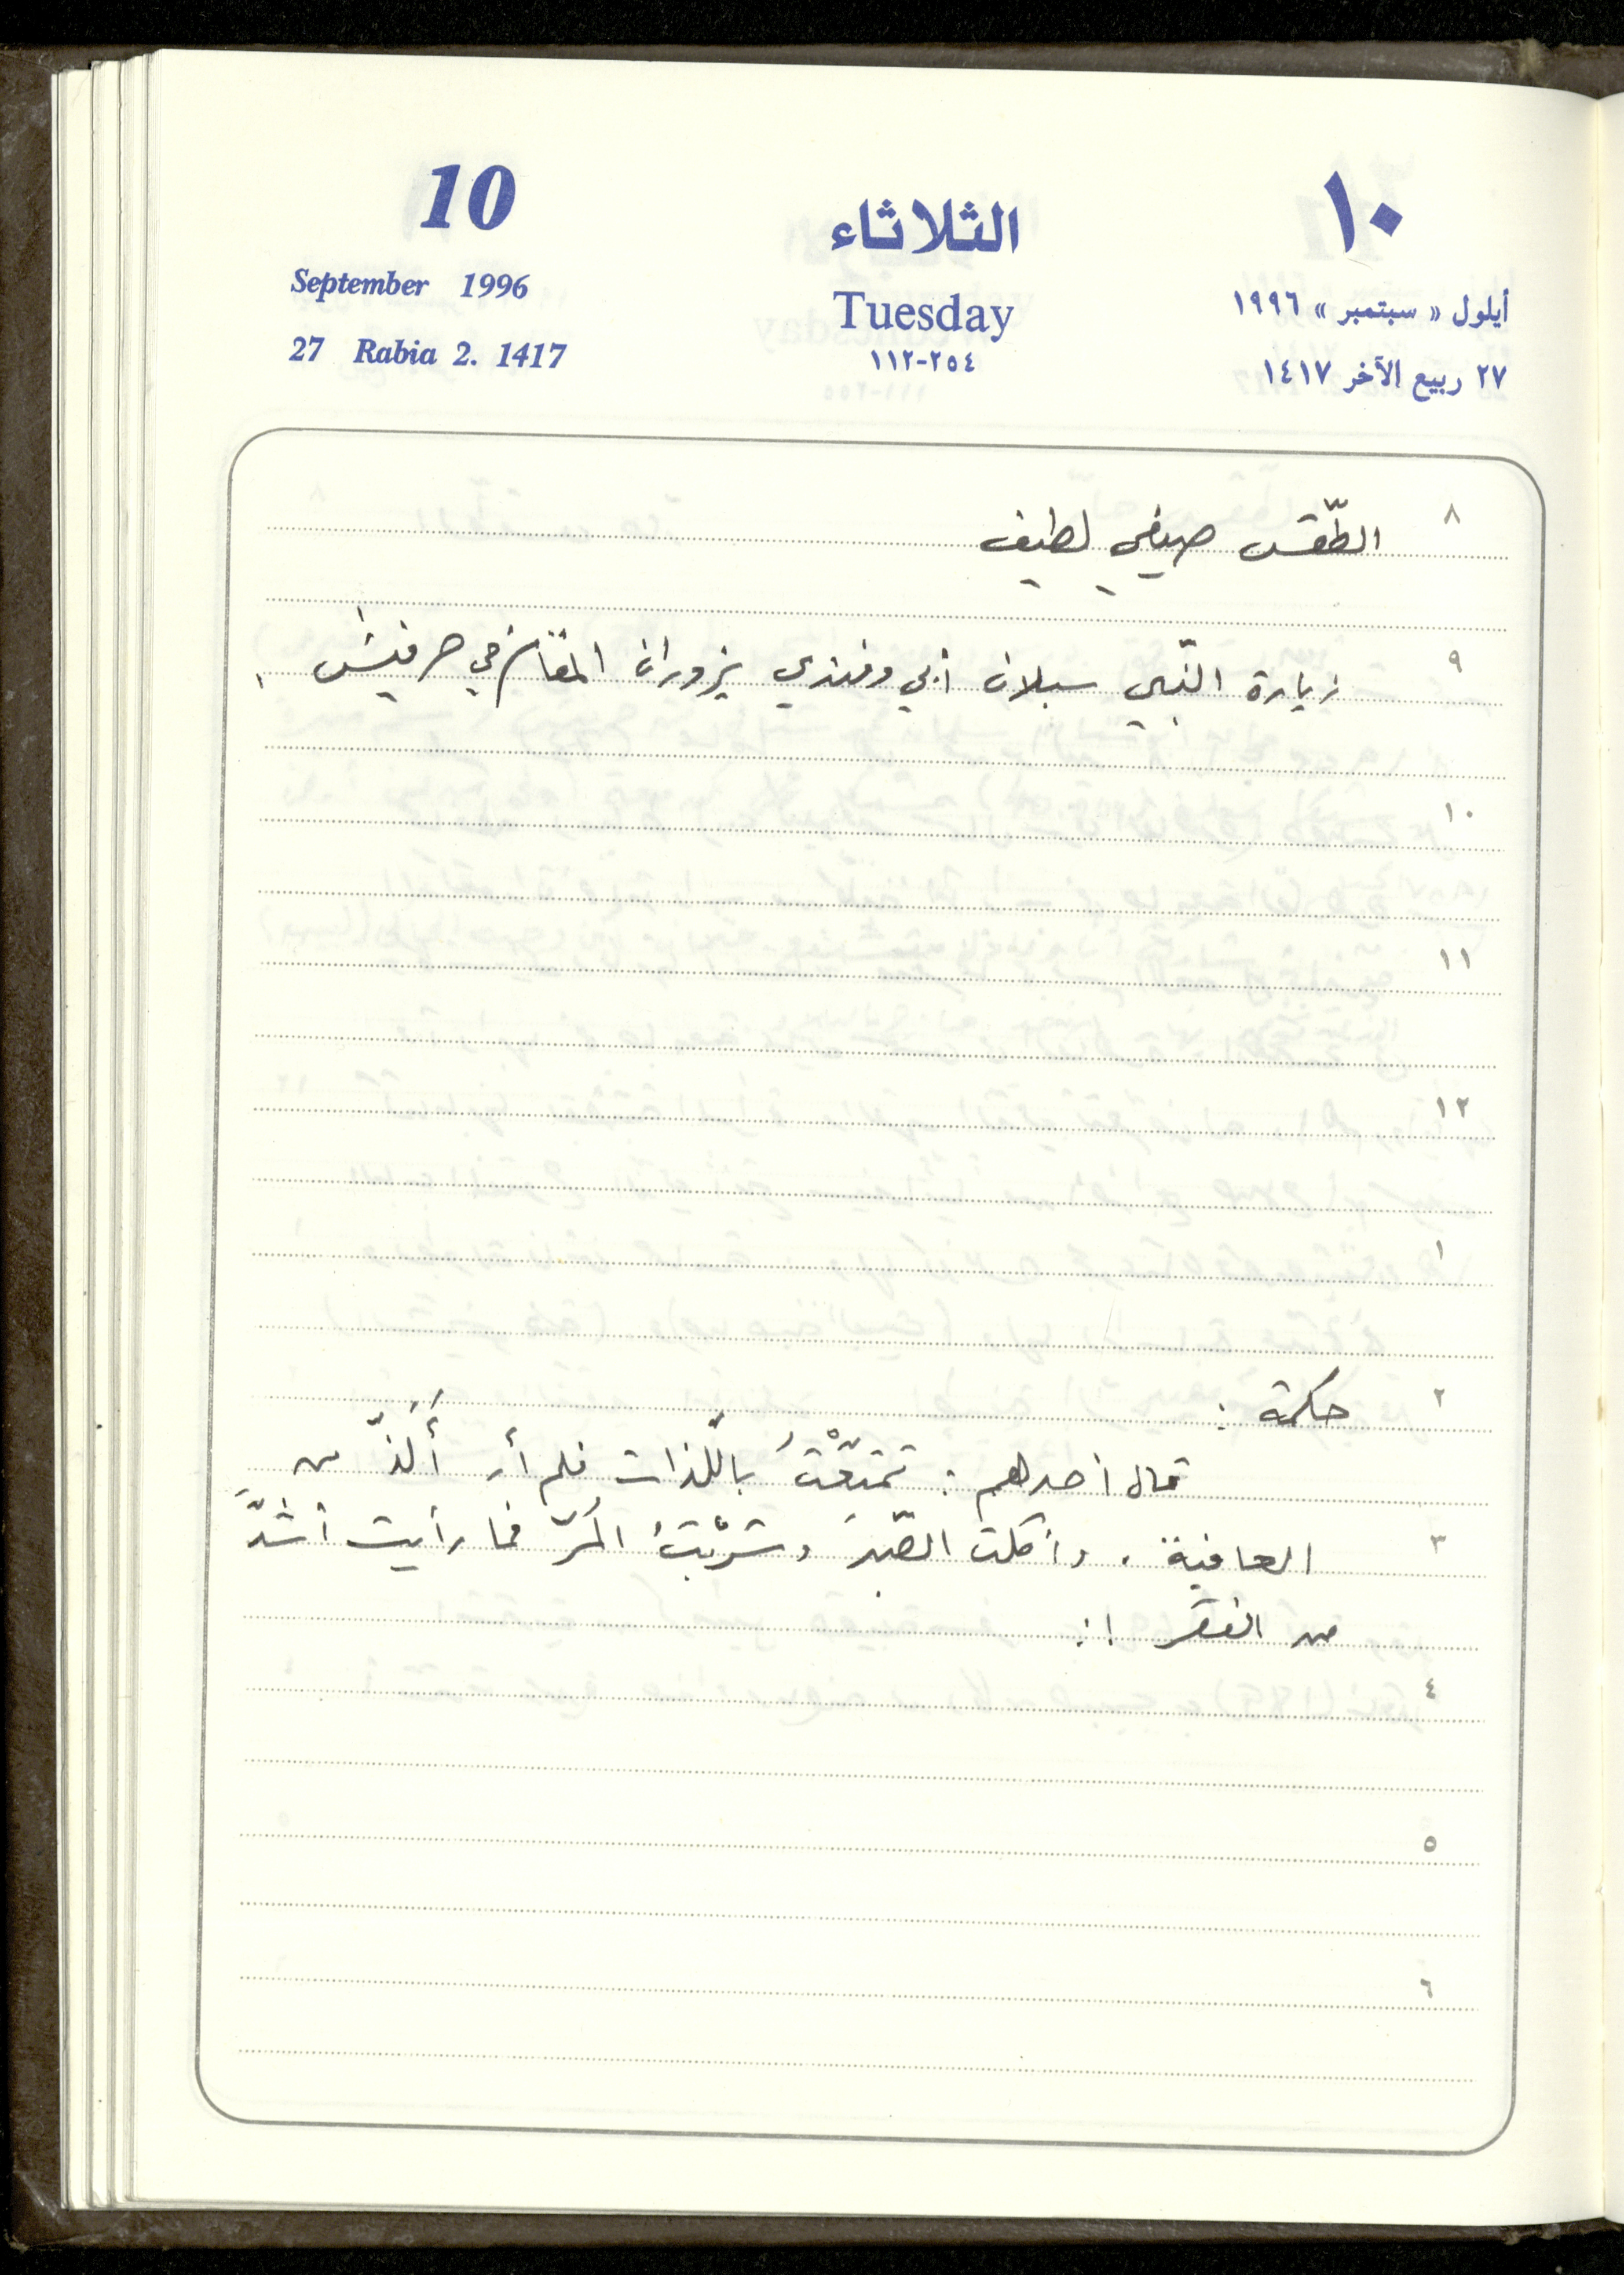 10
١٠
الثلاثاء
September 1996
أيلول « سبتمبر » ١٩٩٦
Tuesday
27 Rabia 2. 1417
٢٧ ربيع الآخر ١٤١٧
٢٥٤-١١٢
٨ الطّقس صيفي لطيف
٩ زيارة النّبي سبلان أبي وفندي يزوران المقام في حرفيش.
١٠
١١
١٢
١
٢ حكمة :
قال أحدهم : تمتعّْتُ باللّذات فلم أرَ أَلَذّ من
٣ العافية. وأكلت الصّبرَ وشرْبتُ المُرّ فما رأيت أشدَّ
من الفقر !:
٤
٥
٦